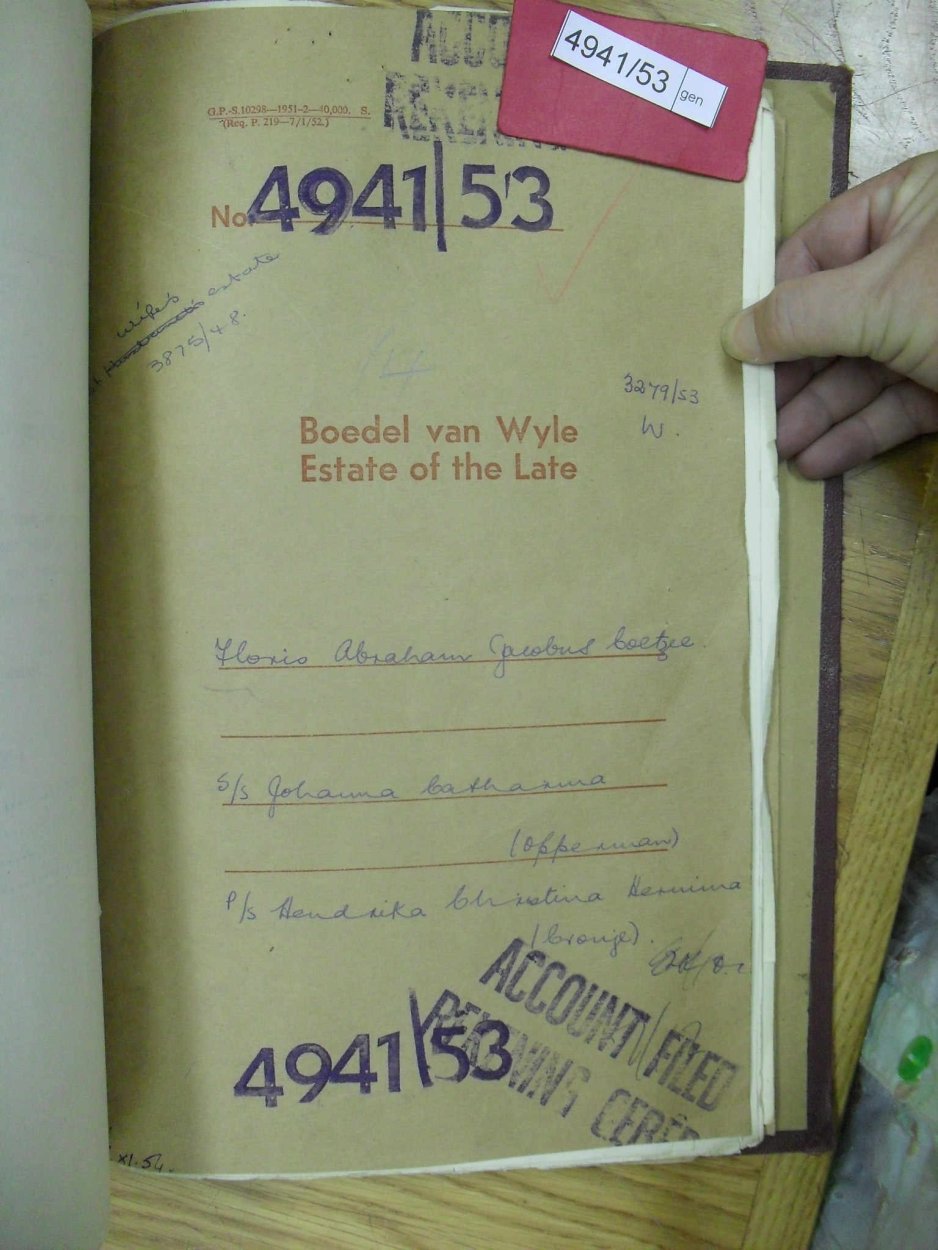 4941/53 gen
G.P.-S.10298—1951-2—40,000. S.
(Req. P. 219—7/1/52.)
No. 4941/53
wife's
Husband's estate
3875/48.
14
3279/53
W.
Boedel van Wyle
Estate of the Late
Floris Abraham Jacobus Coetzee.
S/s Johanna Catharina
(Opperman)
P/s Hendrika Christina Hermina
(Cronje).
ACCOUNT FILED
REKENING
4941/53
XI.54.